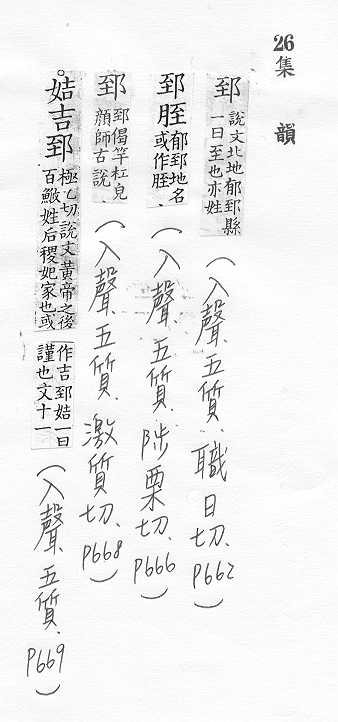 26
集韻
郅 說文北地郁郅縣一曰至也亦姓(入聲五質.職日切.P662)
郅胵 郁郅地名或作胵(入聲五質.陟栗切.P666)
郅 郅偈竿杠皃顏師古說(入聲五質.激質切.P668)
。姞吉郅 極乙切說文黃帝之後百鮌姓后稷妃家也或作吉郅姞一曰謹也文十一(入聲五質.P669)